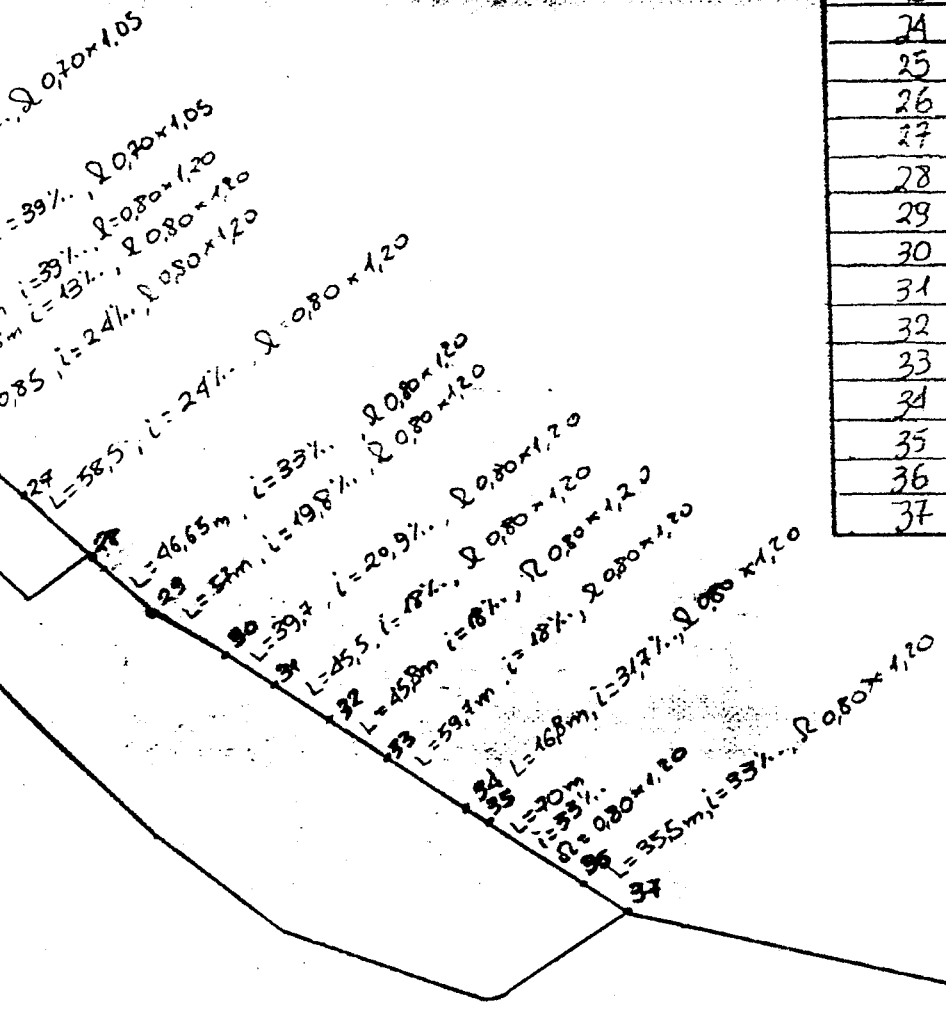 Ω 0,70×1,05
=39‰, Ω 0,70×1,05
i=39‰, Ω=0,80×1,20
m i=13‰, Ω 0,80×1,20
0,85, i=24‰, Ω 0,80×1,20
27
L=58,5, i=24‰, Ω=0,80×1,20
28
L=46,65m, i=33‰, Ω 0,80×1,20
29
L=57m, i=19,8‰, Ω 0,80×1,20
30
L=39,7, i=20,9‰, Ω 0,80×1,20
31
L=45,5, i=18‰, Ω 0,80×1,20
32
L=45,8m i=18‰, Ω 0,80×1,20
33
L=59,7m, i=18‰, Ω 0,80×1,20
34
L=16,8m, i=31,7‰, Ω 0,80×1,20
35
L=70m
i=33‰
Ω=0,80×1,20
36
L=35,5m, i=33‰, Ω 0,80×1,20
37
24
25
26
27
28
29
30
31
32
33
34
35
36
37